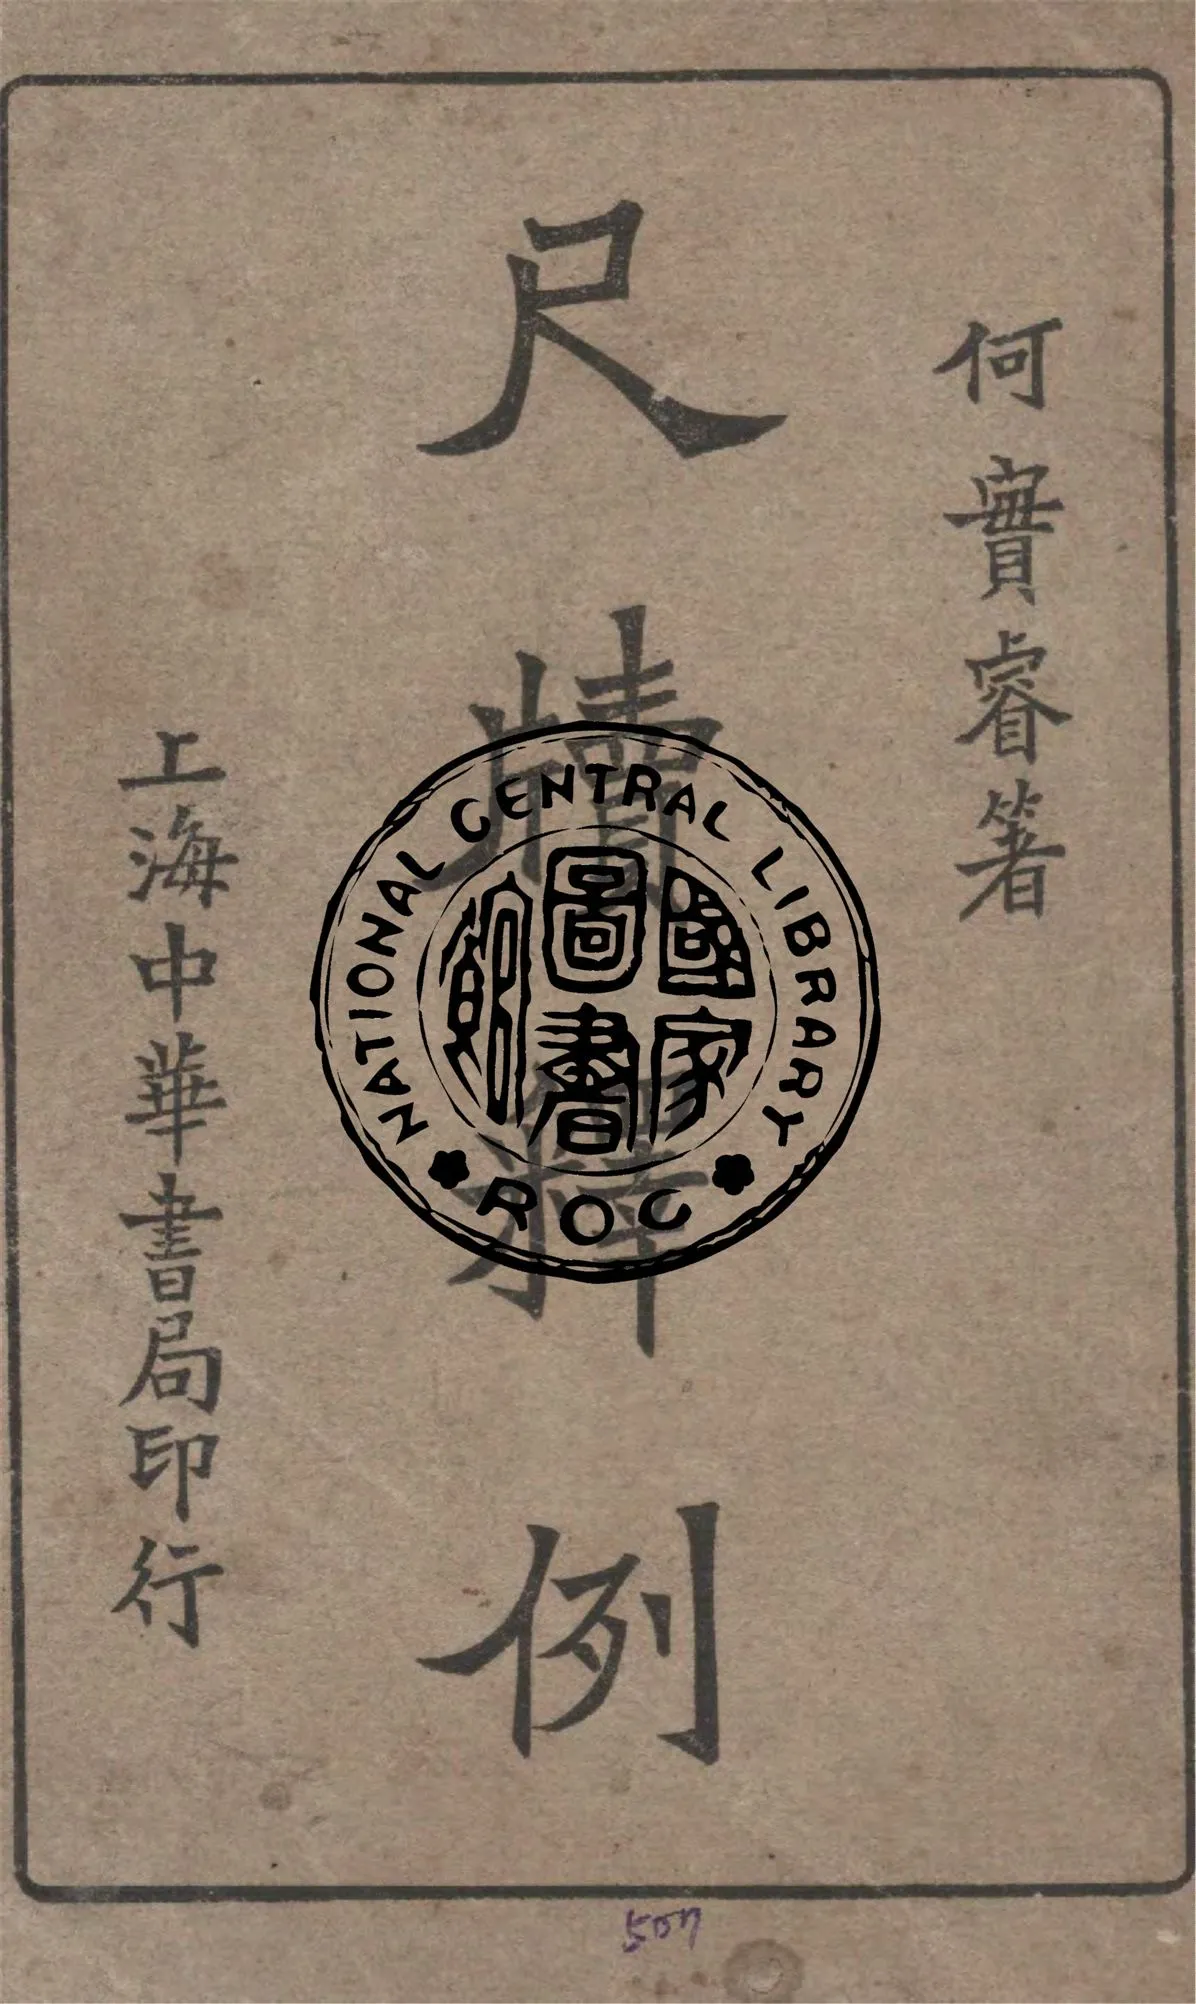 何實睿著
尺牘釋例
上海中華書局印行
NATIONAL CENTRAL LIBRARY
ROC
國家圖書館
507